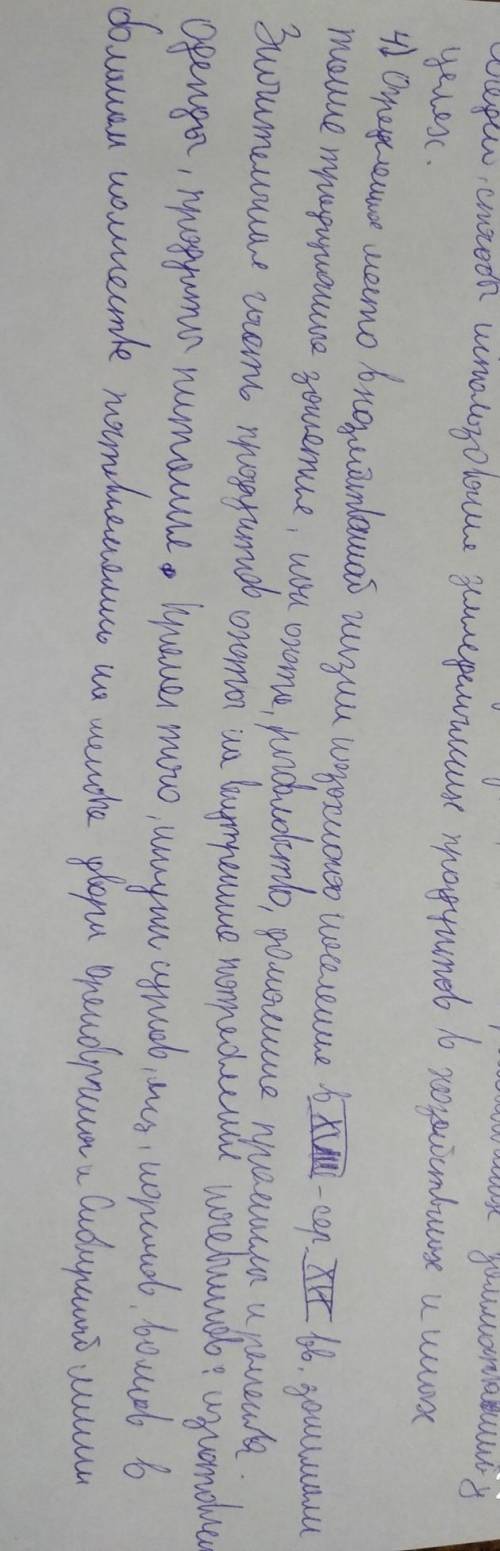 способы использования земледельческих продуктов в хозяйственных и иных
целях.
4) Определенное место в хозяйственной жизни казахского населения в XVIII - сер XIX вв. занимали
такие традиционные занятие, как охота, рыболовство, домашние промыслы и ремесла.
Значительная часть продуктов охоты на внутренние потребление кочевников: изготовлен
одежды, продукты питание. Кроме того, шкуры сурков, лис, корсаков, волков в
большом количестве поставлялись на меновые дворы Оренбургской и Сибирской линии